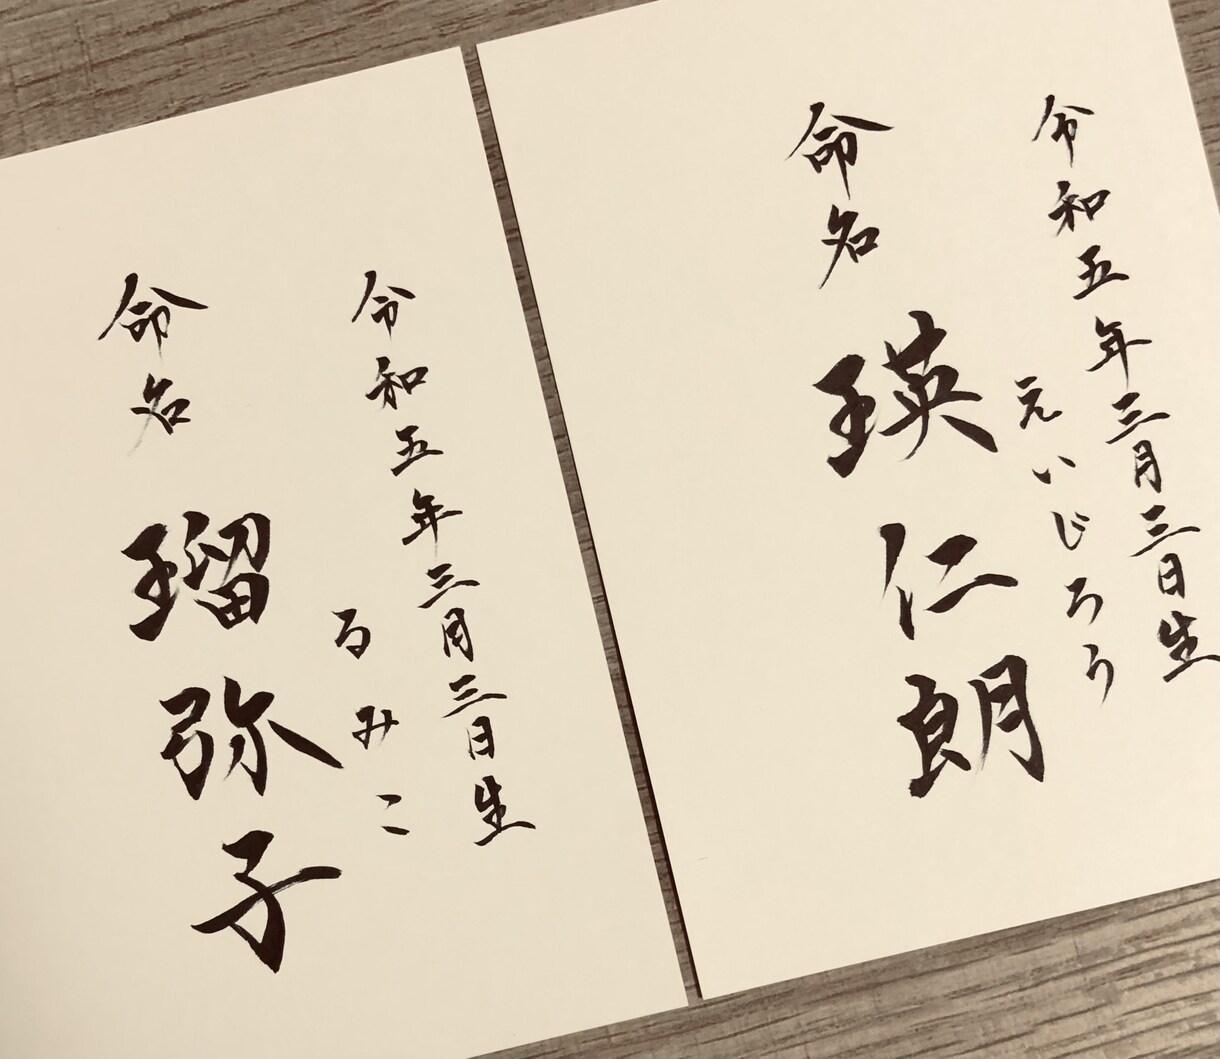 令和五年三月三日生
えいじろう
命名 瑛仁朗
令和五年三月三日生
るみこ
命名 瑠弥子